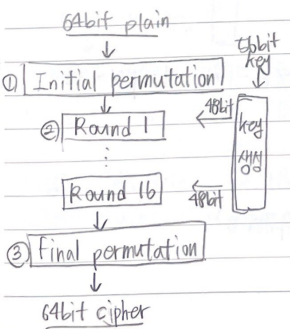 64bit plain
56bit
key
① Initial permutation
48bit
② Round 1
key
생성
Round 16
48bit
③ final permutation
64bit cipher